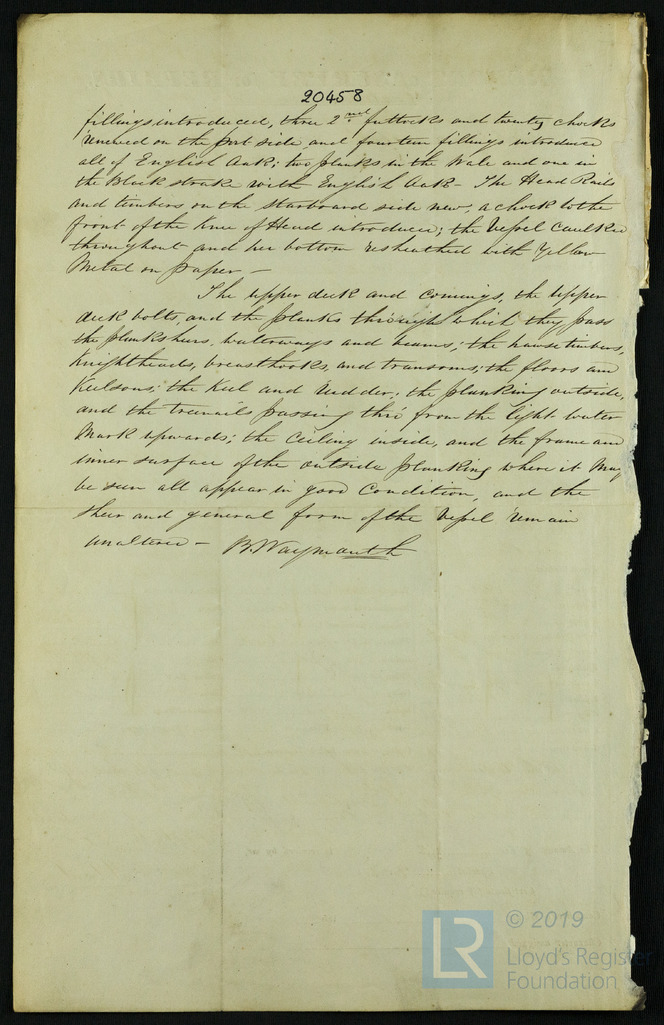 20458
fillings introduced, three 2nd futtocks and twenty chocks
renewed on the port side and fourteen fillings introduced
all of English Oak; two planks in the Wale and one in
the Black strake with English Oak - The Head Rails
and timbers on the starboard side new, a chock to the
front of the Knee of Head introduced; the Vessel Caulked
throughout and her bottom resheathed with Yellow
Metal on paper -
The upper deck and comings, the upper
deck bolts, and the planks through which they pass
the planksheers, waterways and beams; the hawse timbers,
Knightheads, breasthooks, and transoms; the floors and
Keelsons; the Keel and rudder; the planking outside,
and the treenails passing thro' from the light water
Mark upwards; the Ceiling inside, and the frame and
inner surface of the outside planking where it May
be seen all appear in good Condition, and the
sheer and general form of the Vessel remain
unaltered - B. Waymouth
LR
© 2019
Lloyd's Register
Foundation